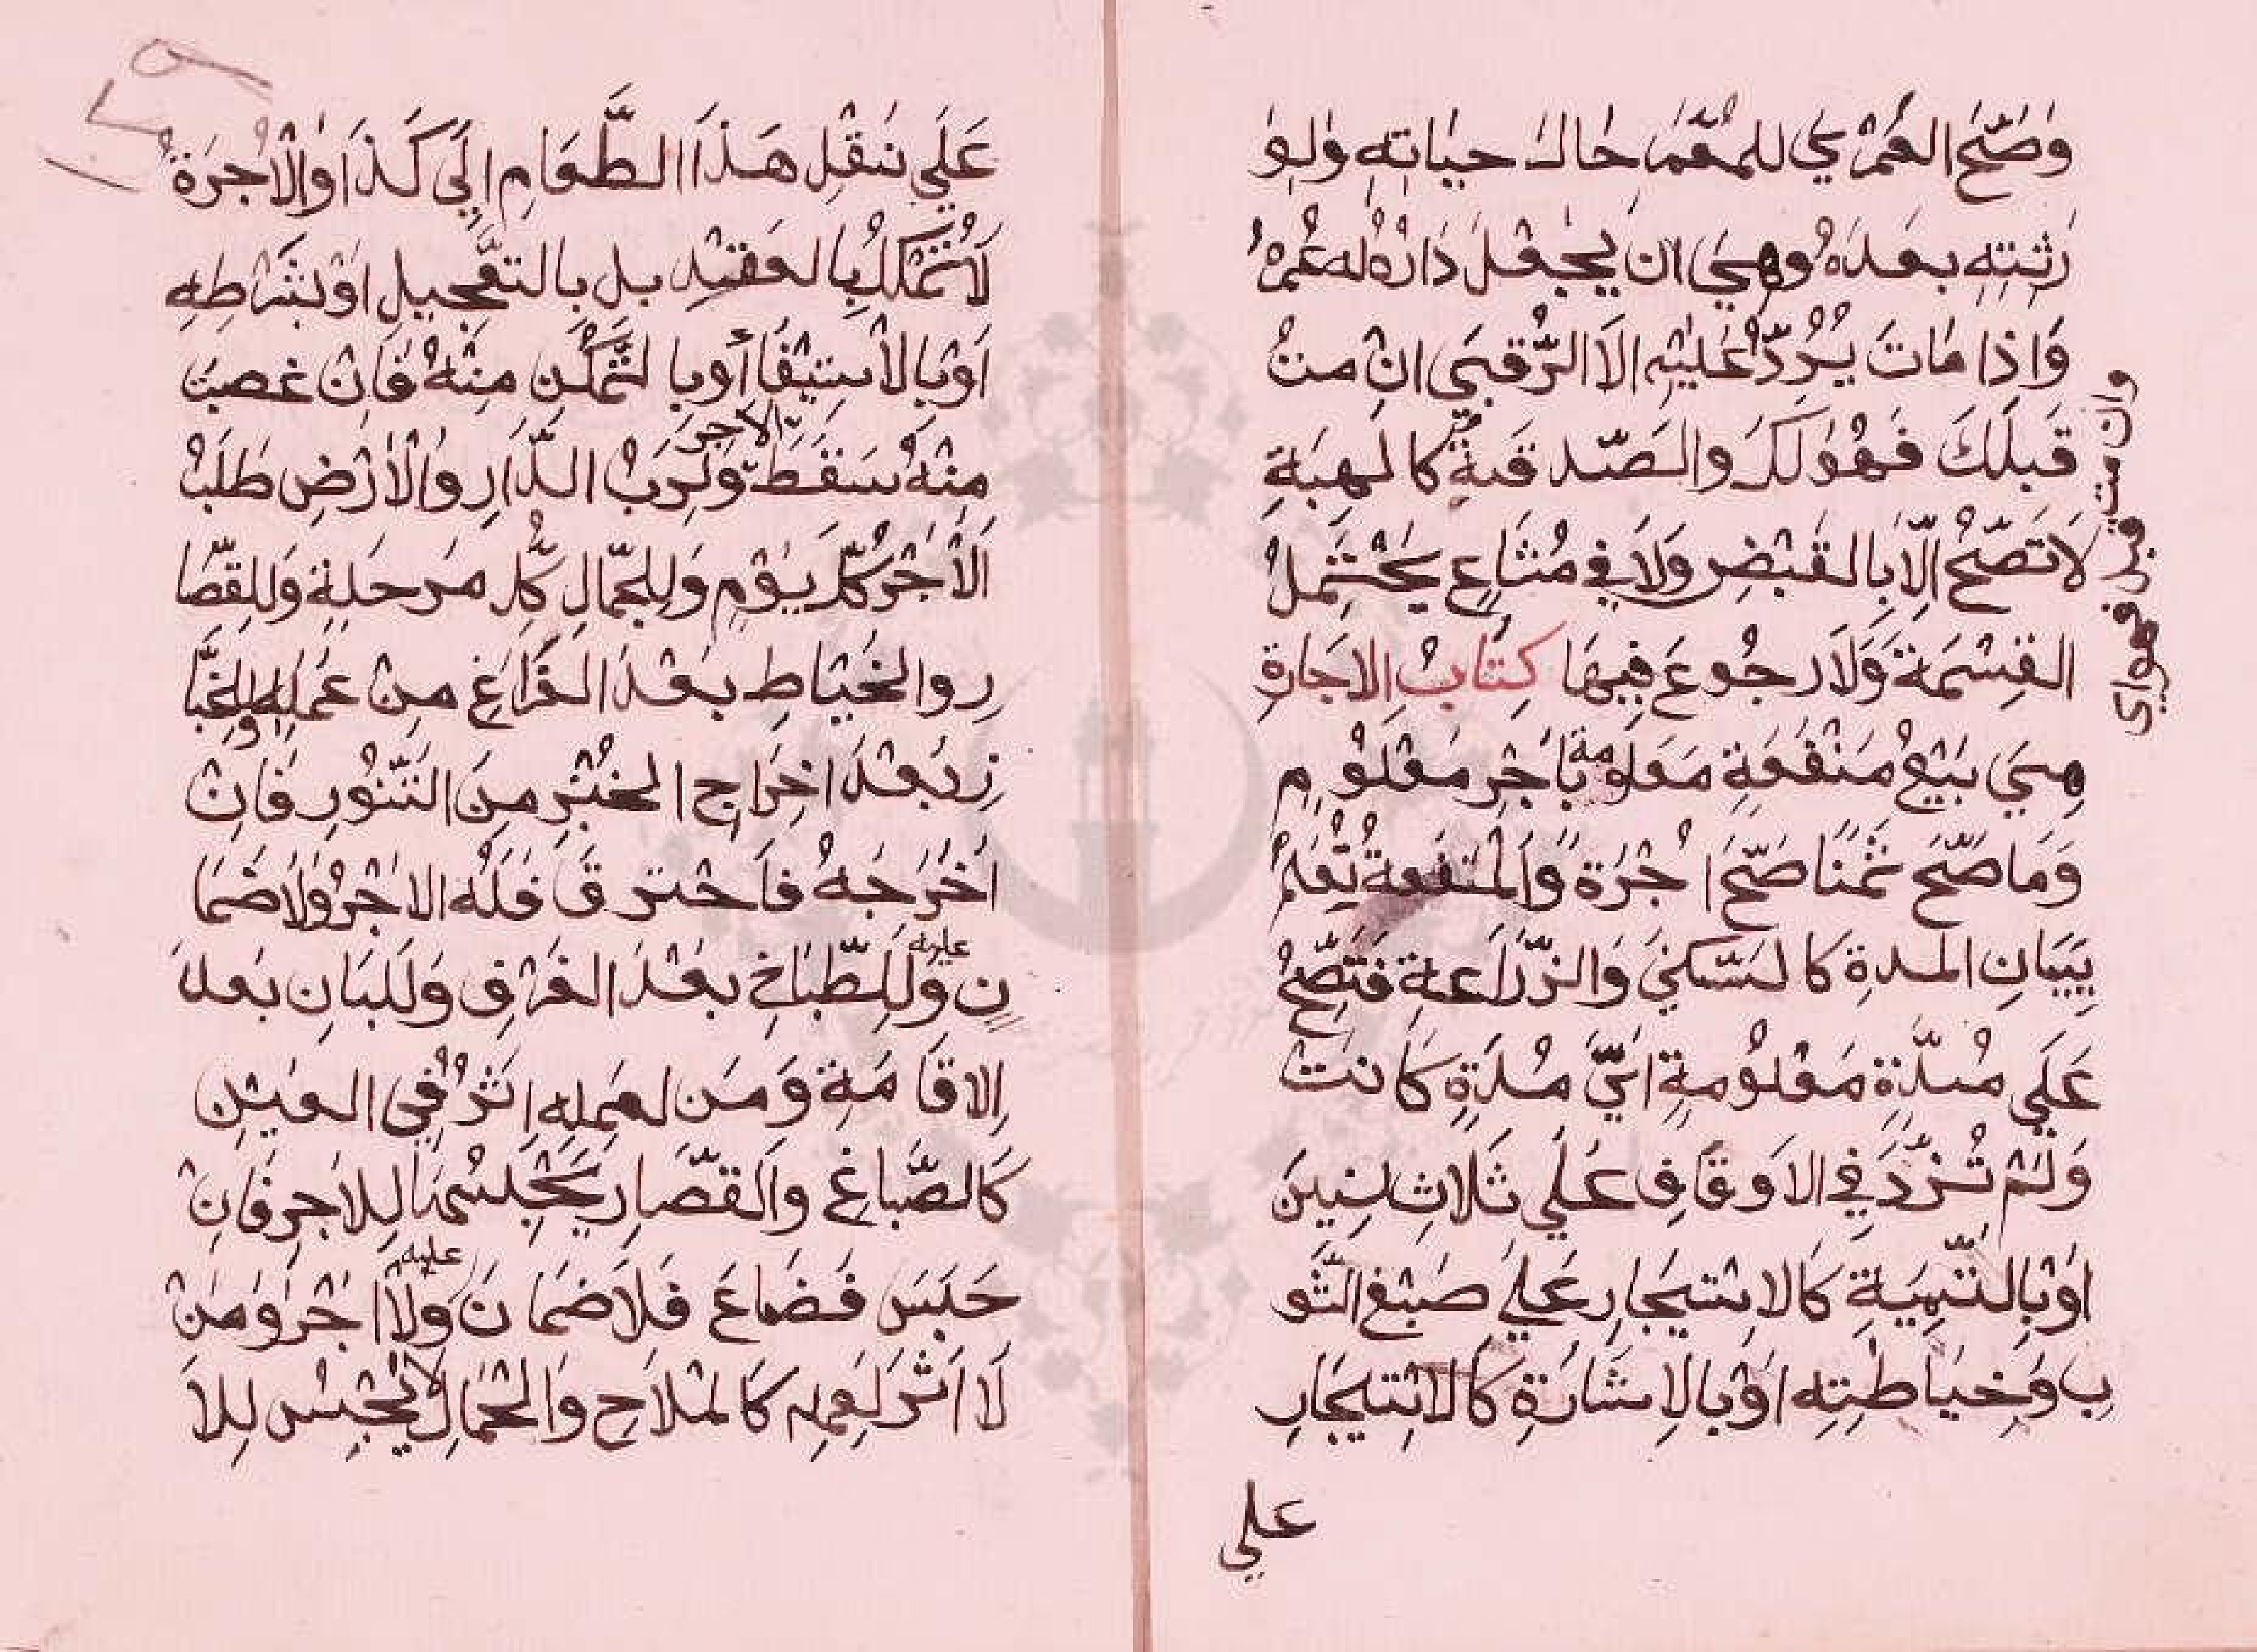 وَصَحَّ العُمْرَي للمُعْمَرِ حَالَ حيَاتِهِ وَلِوَ
رَثَتِهِ بعدَهُ وهِيَ ان يجْعَلَ دَارَهُ لهُ عُمْرَهُ
وَاِذَا مَاتَ يُرَدُّ عَلَيْهِ الاَ الرُّقبَي انْ متُّ
قَبلَكَ فَهُوَ لَكَ والصَّدقَةُ كالهِبَةِ
لاَ تَصَحُّ اِلّا بِالقَبْضِ وَلاَ فِي مُشَاعٍ يَحْتَمِلُ
القِسْمَةَ وَلَا رجُوعَ فِيهَا كِتَابُ الاجَارةِ
هِيَ بَيْعُ مَنْفَعَةٍ مَعلُومة بِاَجْرٍ مَعْلُومٍ
وَمَا صَحَّ ثَمَنًا صَحَّ اُجْرَةً وَالمَنْفَعةُ تُعْلَمُ
بِبَيَانِ المدةِ كالسُّكْنَي وَالزِّرَاعةِ فتَصِحُّ
عَلَي مُدَّةٍ مَعْلُومةٍ ايَّ مُدَةٍ كَانتْ
وَلَمْ تُزدْ فِي الاَوقَافِ عَلَي ثَلاثِ سِنِينَ
اَوْ بِالتَّسْمِيَةِ كَالاِسْتيجَارِ عَلَي صَبْغِ الثَّو
بِ وَخِيَاطَتِهِ اَوْ بالاِشَارَةِ كَالاسْتيجَارِ
علي
وان مت قبلي فهو لي
عَلَي نَقْلِ هَذَا الطَّعَامِ اِلَي كَذَا وَالْاُجْرَةُ
لاَ تُمْلَكُ بِالعَقْدِ بل بِالتعْجِيلِ اَوْ بِشَرْطِهِ
اَوْ بِالاسْتِيْفَا أوبا لتَّمَكُّنِ مِنْهُ فَاِنْ غصبَتْ
مِنْهُ سَقَطَ الاجر وَلِرَبِّ الدَّارِ وَالْاَرْضِ طَلَبُ
الْاَجْرِ كُلَّ يَوْمٍ وَلِلجَمَّالِ كُلَّ مَرحَلَةٍ وَلِلقَصَّا
رِ والخَيَّاطِ بَعْدَ الفَرَاغِ مِنْ عَمَلِهِ وللخَبَّا
زِ بَعْدَ اخِرَاجِ الخُبْزِ مِنَ التَنّوُرِ فَاِنْ
اَخْرَجَهُ فاَحْتَرقَ فَلَهُ الاَجْرُ وَلَا ضَمَا
نَ عليه وَلِلطَّبَاخِ بعْدَ الغَرْفِ وَلَلبَّانِ بَعدَ
الاِقَامَةِ وَمَن لعَمِلِهِ اثَرٌ فِي العَيْنِ
كَالصَّباغِ والقَصَّارِ يَحْبِسُهَا لِلاَجرِ فَاِنْ
حَبَسَ فَضَاعَ فَلَا ضَمَانَ عليه وَلَا اجْرَ وَمَنْ
لَا اَثَرَ لِعَمِلِهِ كَالمَلاَحِ وَالحَمَّالِ لَا يَحْبِسُ لِلاَ